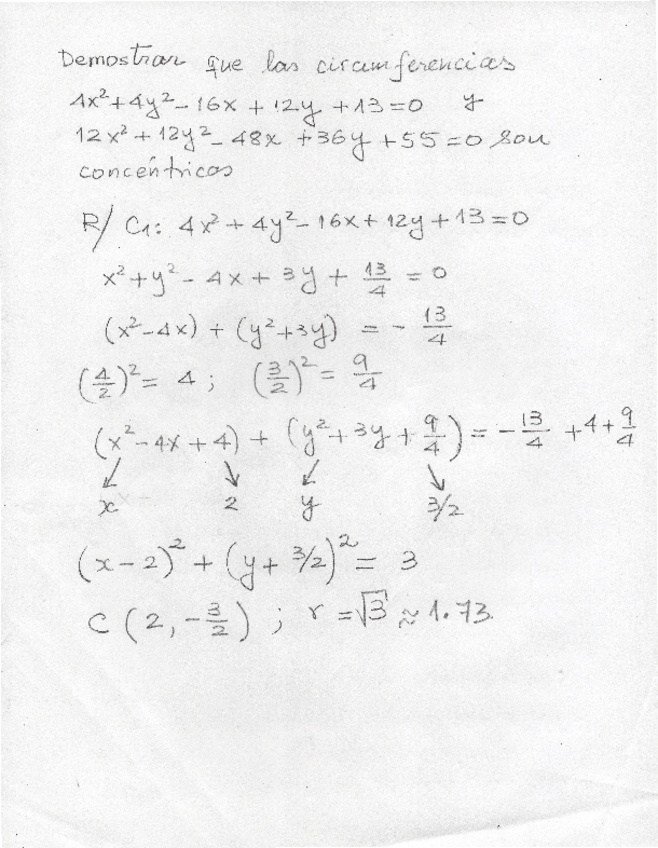 Demostrar que las circunferencias
4x²+4y²-16x+12y+13=0 y
12x²+12y²-48x+36y+55=0 son
concéntricas
R/ C₁: 4x²+4y²-16x+12y+13=0
x²+y²-4x+3y+13/4=0
(x²-4x)+(y²+3y)=-13/4
(4/2)²=4; (3/2)²=9/4
(x²-4x+4)+(y²+3y+9/4)=-13/4+4+9/4
↙ ↘ ↙ ↘
x 2 y 3/2
(x-2)²+(y+3/2)²=3
C(2,-3/2); r=√3≈1.73